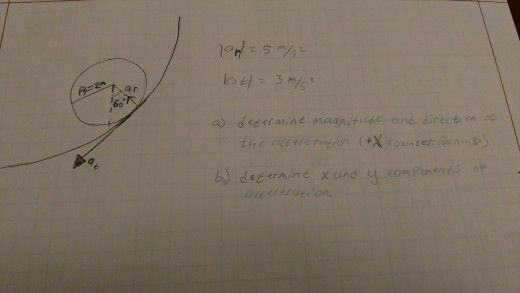 |ar| = 5 m/s²
|at| = 3 m/s²
R=2m
ar
60°
at
a) determine magnitude and direction of
the acceleration (+X counterclockwise)
b) determine x and y components of
acceleration.